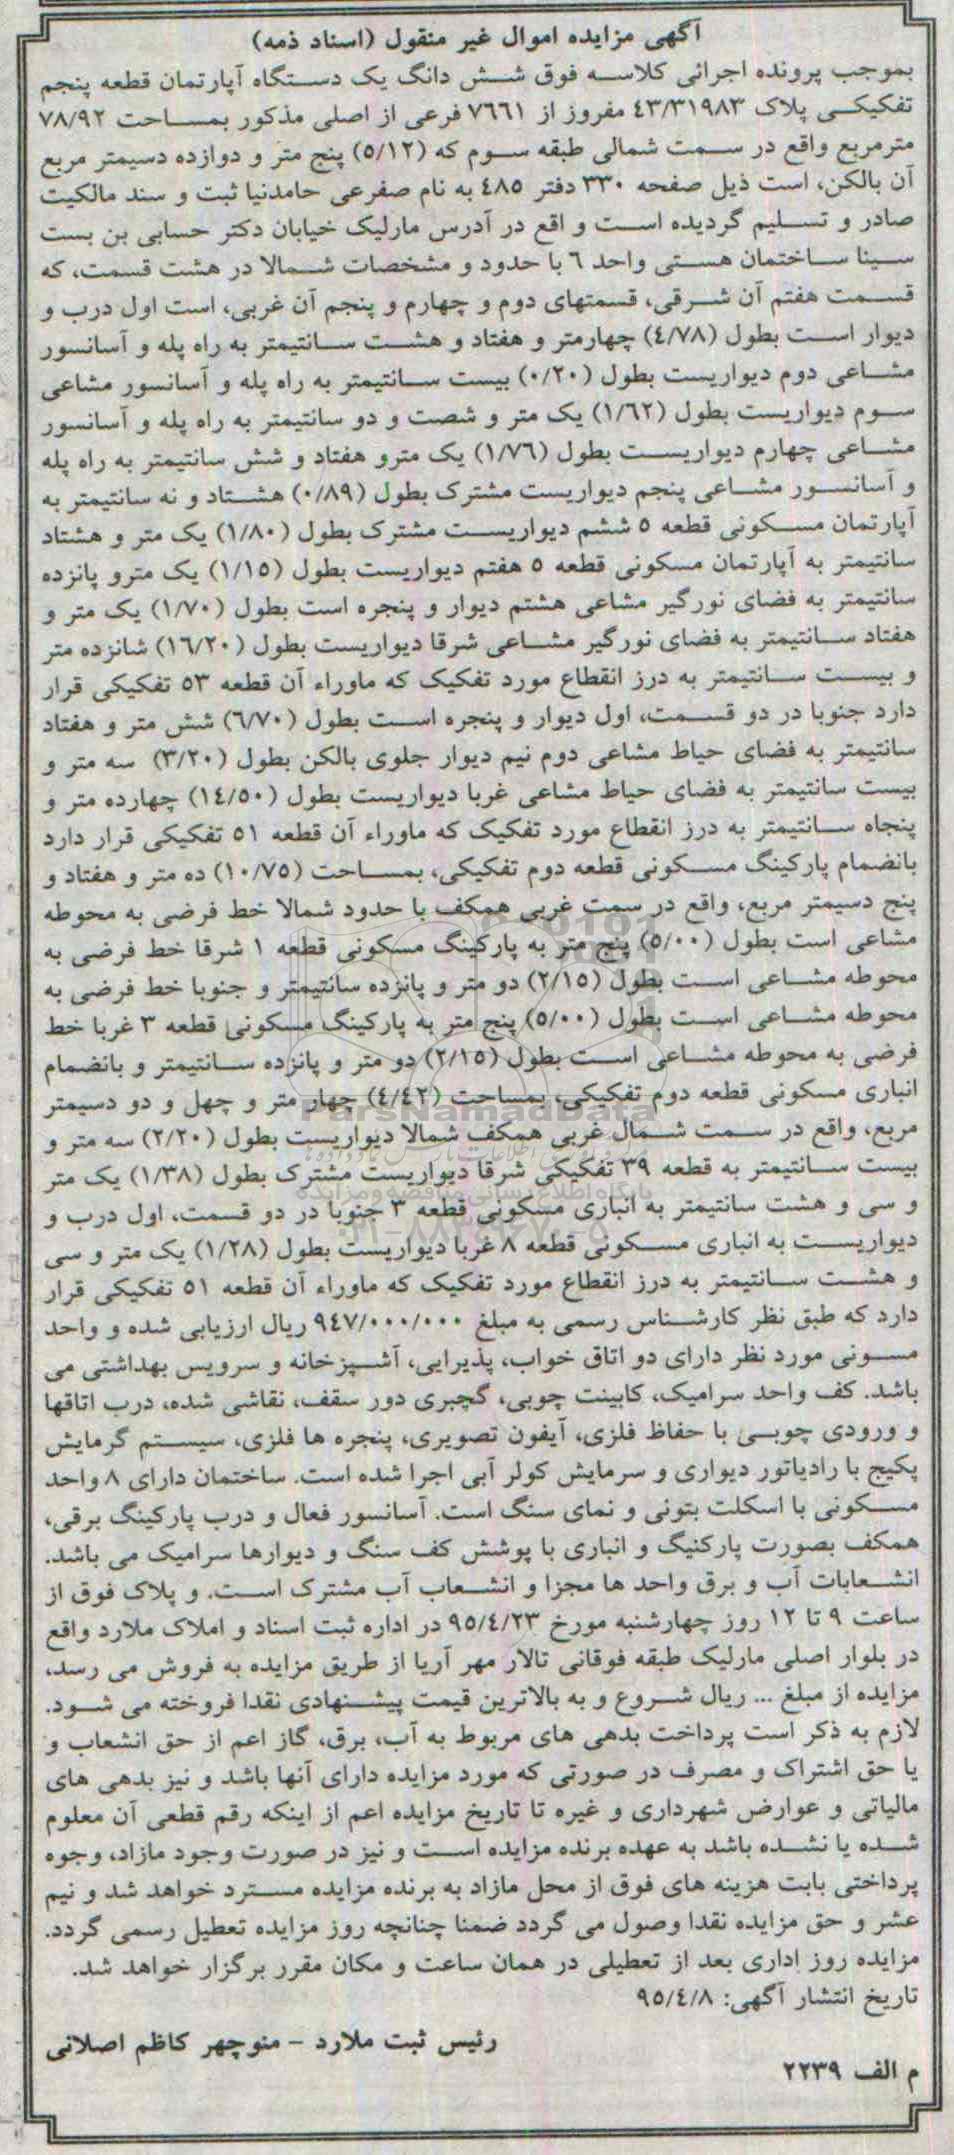 آگهی مزایده اموال غیر منقول (اسناد ذمه)
بموجب پرونده اجرائی کلاسه فوق شش دانگ یک دستگاه آپارتمان قطعه پنجم
تفکیکی پلاک ٤٣/٣١٩٨٣ مفروز از ٧٦٦١ فرعی از اصلی مذکور بمساحت ٧٨/٩٢
مترمربع واقع در سمت شمالی طبقه سوم که (٥/١٢) پنج متر و دوازده دسیمتر مربع
آن بالکن، است ذیل صفحه ٣٣٠ دفتر ٤٨٥ به نام صفرعی حامدنیا ثبت و سند مالکیت
صادر و تسلیم گردیده است و اقع در آدرس مارلیک خیابان دکتر حسابی بن بست
سینا ساختمان هستی واحد ٦ با حدود و مشخصات شمالا در هشت قسمت، که
قسمت هفتم آن شرقی، قسمتهای دوم و چهارم و پنجم آن غربی، است اول درب و
دیوار است بطول (٤/٧٨) چهارمتر و هفتاد و هشت سانتیمتر به راه پله و آسانسور
مشاعی دوم دیواریست بطول (٠/٢٠) بیست سانتیمتر به راه پله و آسانسور مشاعی
سوم دیواریست بطول (١/٦٢) یک متر و شصت و دو سانتیمتر به راه پله و آسانسور
مشاعی چهارم دیواریست بطول (١/٧٦) یک مترو هفتاد و شش سانتیمتر به راه پله
و آسانسور مشاعی پنجم دیواریست مشترک بطول (٠/٨٩) هشتاد و نه سانتیمتر به
آپارتمان مسکونی قطعه ٥ ششم دیواریست مشترک بطول (١/٨٠) یک متر و هشتاد
سانتیمتر به آپارتمان مسکونی قطعه ٥ هفتم دیواریست بطول (١/١٥) یک مترو پانزده
سانتیمتر به فضای نورگیر مشاعی هشتم دیوار و پنجره است بطول (١/٧٠) یک متر و
هفتاد سانتیمتر به فضای نورگیر مشاعی شرقا دیواریست بطول (١٦/٢٠) شانزده متر
و بیست سانتیمتر به درز انقطاع مورد تفکیک که ماوراء آن قطعه ٥٣ تفکیکی قرار
دارد جنوبا در دو قسمت، اول دیوار و پنجره است بطول (٦/٧٠) شش متر و هفتاد
سانتیمتر به فضای حیاط مشاعی دوم نیم دیوار جلوی بالکن بطول (٣/٢٠) سه متر و
بیست سانتیمتر به فضای حیاط مشاعی غربا دیواریست بطول (١٤/٥٠) چهارده متر و
پنجاه سانتیمتر به درز انقطاع مورد تفکیک که ماوراء آن قطعه ٥١ تفکیکی قرار دارد
بانضمام پارکینگ مسکونی قطعه دوم تفکیکی، بمساحت (١٠/٧٥) ده متر و هفتاد و
پنج دسیمتر مربع، واقع در سمت غربی همکف با حدود شمالا خط فرضی به محوطه
مشاعی است بطول (٥/٠٠) پنج متر به پارکینگ مسکونی قطعه ١ شرقا خط فرضی به
محوطه مشاعی است بطول (٢/١٥) دو متر و پانزده سانتیمتر و جنوبا خط فرضی به
محوطه مشاعی است بطول (٥/٠٠) پنج متر به پارکینگ مسکونی قطعه ٣ غربا خط
فرضی به محوطه مشاعی است بطول (٢/١٥) دو متر و پانزده سانتیمتر و بانضمام
انباری مسکونی قطعه دوم تفکیکی، بمساحت (٤/٤٢) چهار متر و چهل و دو دسیمتر
ParsNamadData
مربع، واقع در سمت شمال غربی همکف شمالا دیواریست بطول (٢/٢٠) سه متر و
بیست سانتیمتر به قطعه ٣٩ تفکیکی شرقا دیواریست مشترک بطول (١/٣٨) یک متر
پایگاه اطلاع رسانی مناقصه و مزایده
و سی و هشت سانتیمتر به انباری مسکونی قطعه ٣ جنوبا در دو قسمت، اول درب و
۰۲۱-۸۸۳۴۹۶۷۰-۵
دیواریست به انباری مسکونی قطعه ٨ غربا دیواریست بطول (١/٢٨) یک متر و سی
و هشت سانتیمتر به درز انقطاع مورد تفکیک که ماوراء آن قطعه ٥١ تفکیکی قرار
دارد که طبق نظر کارشناس رسمی به مبلغ ٩٤٧/٠٠٠/٠٠٠ ریال ارزیابی شده و واحد
مسونی مورد نظر دارای دو اتاق خواب، پذیرایی، آشپزخانه و سرویس بهداشتی می
باشد. کف واحد سرامیک، کابینت چوبی، گچبری دور سقف، نقاشی شده، درب اتاقها
و ورودی چوبی با حفاظ فلزی، آیفون تصویری، پنجره ها فلزی، سیستم گرمایش
پکیج با رادیاتور دیواری و سرمایش کولر آبی اجرا شده است. ساختمان دارای ٨ واحد
مسکونی با اسکلت بتونی و نمای سنگ است. آسانسور فعال و درب پارکینگ برقی،
همکف بصورت پارکنیگ و انباری با پوشش کف سنگ و دیوارها سرامیک می باشد.
انشعابات آب و برق واحد ها مجزا و انشعاب آب مشترک است. و پلاک فوق از
ساعت ٩ تا ١٢ روز چهارشنبه مورخ ٩٥/٤/٢٣ در اداره ثبت اسناد و املاک ملارد واقع
در بلوار اصلی مارلیک طبقه فوقانی تالار مهر آریا از طریق مزایده به فروش می رسد،
مزایده از مبلغ ... ریال شروع و به بالاترین قیمت پیشنهادی نقدا فروخته می شود.
لازم به ذکر است پرداخت بدهی های مربوط به آب، برق، گاز اعم از حق انشعاب و
یا حق اشتراک و مصرف در صورتی که مورد مزایده دارای آنها باشد و نیز بدهی های
مالیاتی و عوارض شهرداری و غیره تا تاریخ مزایده اعم از اینکه رقم قطعی آن معلوم
شده یا نشده باشد به عهده برنده مزایده است و نیز در صورت وجود مازاد، وجوه
پرداختی بابت هزینه های فوق از محل مازاد به برنده مزایده مسترد خواهد شد و نیم
عشر و حق مزایده نقدا وصول می گردد ضمنا چنانچه روز مزایده تعطیل رسمی گردد.
مزایده روز اداری بعد از تعطیلی در همان ساعت و مکان مقرر برگزار خواهد شد.
تاریخ انتشار آگهی: ٩٥/٤/٨
رئیس ثبت ملارد - منوچهر کاظم اصلانی
م الف ٢٢٣٩